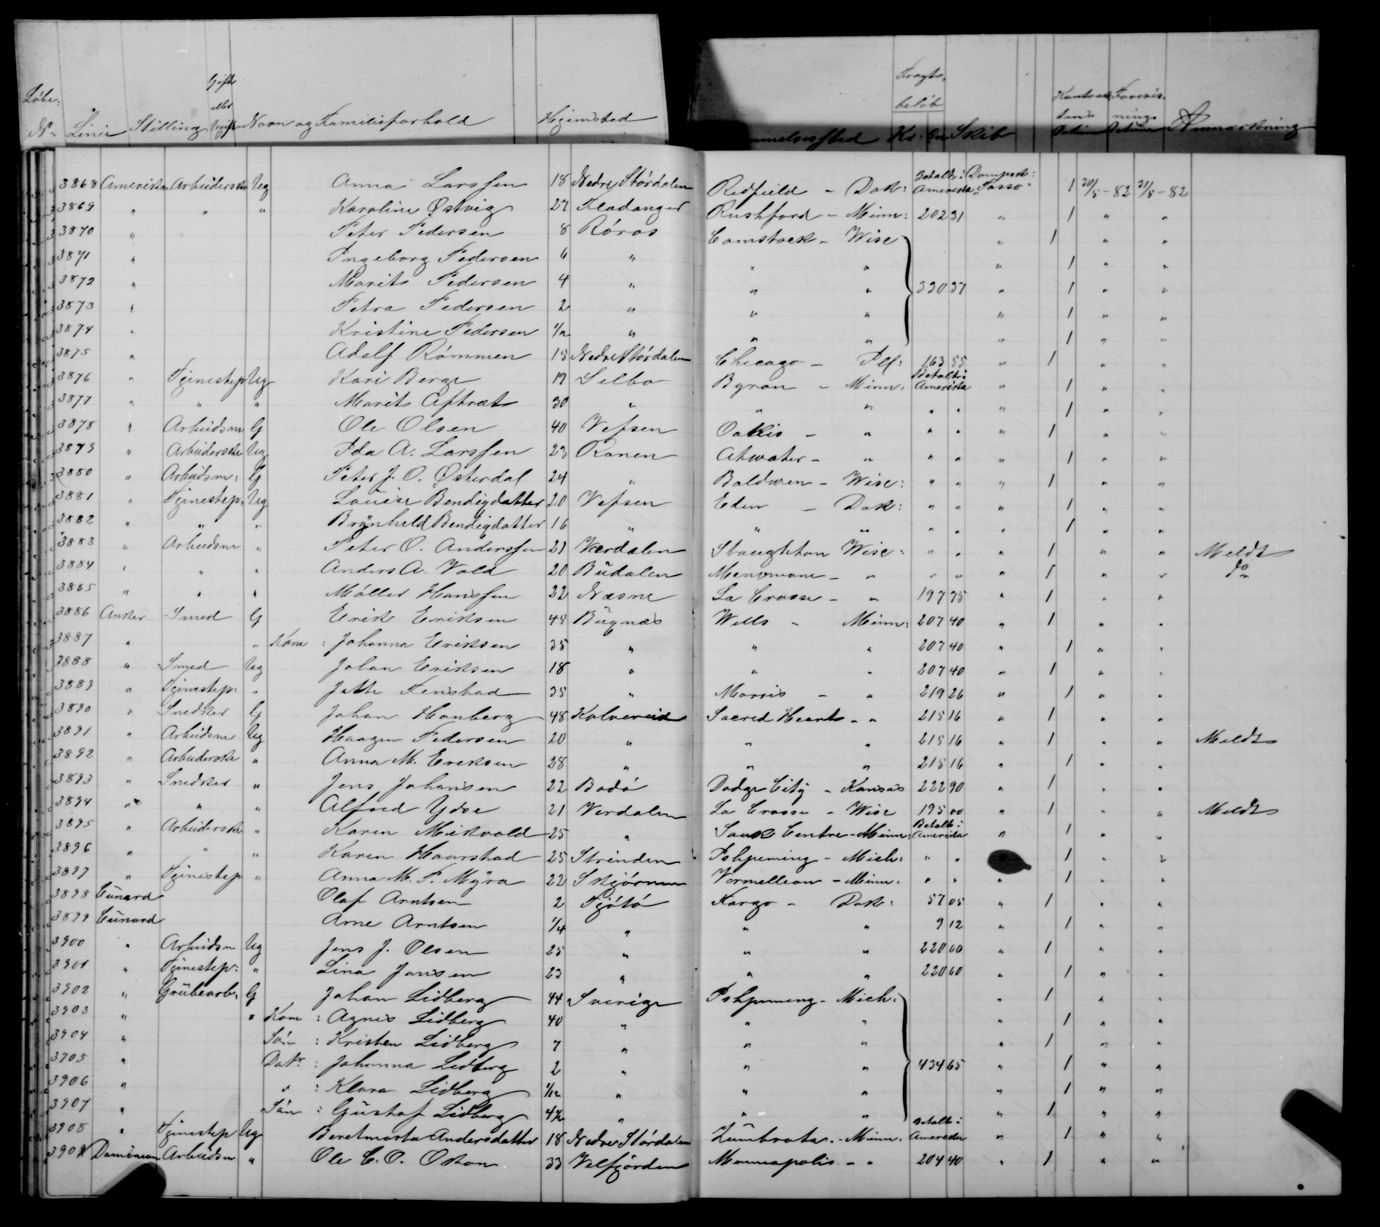 Løbe- No. Linie Stilling Gift eller Ugift Navn og Familieforhold Hjemsted Fragtbeløb Kr. Øre Skib Anmærkning
3868 Amerika Arbeiderske Ug Anna Larssen 18 Nedre Størdalen Redfield - Dak: Betalt i Amerika Dampsk: Tasso 1 30/5-82 31/5-82
3869 " " " Karoline Østvig 27 Rushford - Minn: 202 31 " 1 " "
3870 " Peter Pedersen 8 Røros Comstock - Wisc " 1 " "
3871 " Ingeborg Pedersen 6 " " " " 1 " "
3872 " Marits Pedersen 4 " " " 330 37 " 1 " "
3873 " Petra Pedersen 2 " " " " 1 " "
3874 " Kristine Pedersen 1/2 " " " " 1 " "
3875 " Adolf Rømmen 15 Nedre Størdalen Chicago - Ill: 163 55 " 1 " "
3876 " Tjenestep Ug Kari Berge 19 Selbo Byron - Minn: Betalt i Amerika " 1 " "
3877 " " " Marits Aftret 30 " " " " " " 1 " "
3878 " Arbeidsm G Ole Olsen 40 Vefsen " " " " 1 " "
3879 " Arbeiderske Ug Ida A. Larssen 23 Ranen Atwater - " " " " 1 " "
3880 " Arbeidsm: G Peter J. O. Østerdal 24 " Baldwin - Wisc: " " " 1 " "
3881 " Tjenestep: Ug Louise Bendigdatter 20 Vefsen Eden - Dak: " " " 1 " "
3882 " " " Brynhild Bendigdatter 16 " " " " " " 1 " "
3883 " Arbeidsm " Peter O. Anderssen 21 Værdalen Stoughton Wisc: " " " 1 " " Meldt
3884 " " " Anders A. Vold 20 Budalen Menomonie - " " " " 1 " " do
3885 " " " Møller Hanssen 22 Næsne La Crosse - " 197 75 " 1 " "
3886 Anker Smed G Erik Eriksen 45 Bugnæs Wells - Minn: 207 40 " 1 " "
3887 " " Kone: Johanna Eriksen 35 " " " 207 40 1 " "
3888 " Smed Ug Johan Eriksen 18 " " " 207 40 " 1 " "
3889 " Tjenestep: " 35 " Morris - " 219 26 " 1 " "
3890 " Snedker G Johan Hanberg 48 Kolvereid Sacred Heart - " 215 16 " 1 " "
3891 " Arbeidsm Ug Haagen Pedersen 20 " " " 215 16 " 1 " " Meldt
3892 " Arbeiderske " Anna M. Eriksen 28 " " " 215 16 " 1 " "
3893 " Snedker " Jens Johansen 22 Bodø Dodge City - Kansas 222 90 " 1 " "
3894 " " " Alfred Ydse 21 Verdalen La Crosse - Wisc 195 00 " 1 " " Meldt
3895 " Arbeiderske " Karen Meikvold 25 " Sauk Centre - Minn: Betalt i Amerika " 1 " "
3896 " " " Karen Haarstad 25 Strinden Ishpeming - Mich: " " 1 " "
3897 " Tjenestep " Anna M. P. Myra 22 Vermillion - Minn: " " " 1 " "
3898 Cunard Olaf Arntsen 2 Tjøtø Kargo - Dak: 57 05 " 1 " "
3899 Cunard Arne Arntsen 1/4 " " " 9 12 " 1 " "
3900 " Arbeidsm Ug Jens J. Olsen 25 " " " 220 60 " 1 " "
3901 " Tjenestep: " Lina Jansen 23 " " " 220 60 " 1 " "
3902 " Grubearb: G Johan Lidberg 44 Sverige Ishpeming - Mich: " 1 " "
3903 " " Kone: Agnes Lidberg 40 " " " " 1 " "
3904 " Søn: Kristen Lidberg 7 " " " " 1 " "
3905 " Datr: Johanna Lidberg 2 " " " 434 65 " 1 " "
3906 " " : Klara Lidberg 1/12 " " " " 1 " "
3907 " Søn: Gustaf Lidberg 4 1/2 " " " " 1 " "
3908 " Tjenestep Ug Beretmarta Andersdatter 18 Nedre Størdalen Zumbrota - Minn: Betalt i Amerika " 1 " "
3909 Dominion Arbeidsm " Ole C. O. 33 Velfjorden Minneapolis - " 204 40 " 1 " "